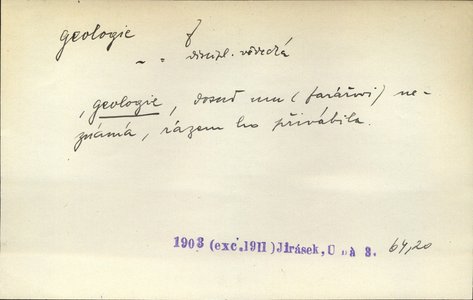 geologie f
~ . discipl. vědecká
, geologie, dosud mu (faráři) ne-
známá, rázem ho přivábila.
1903 (exc. 1911) Jirásek, U nás 3. 64,20